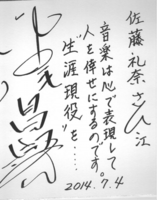 佐藤礼奈さん江
音楽は心で表現して
人を倖せにするのです。
"生涯現役"を……
2014.7.4